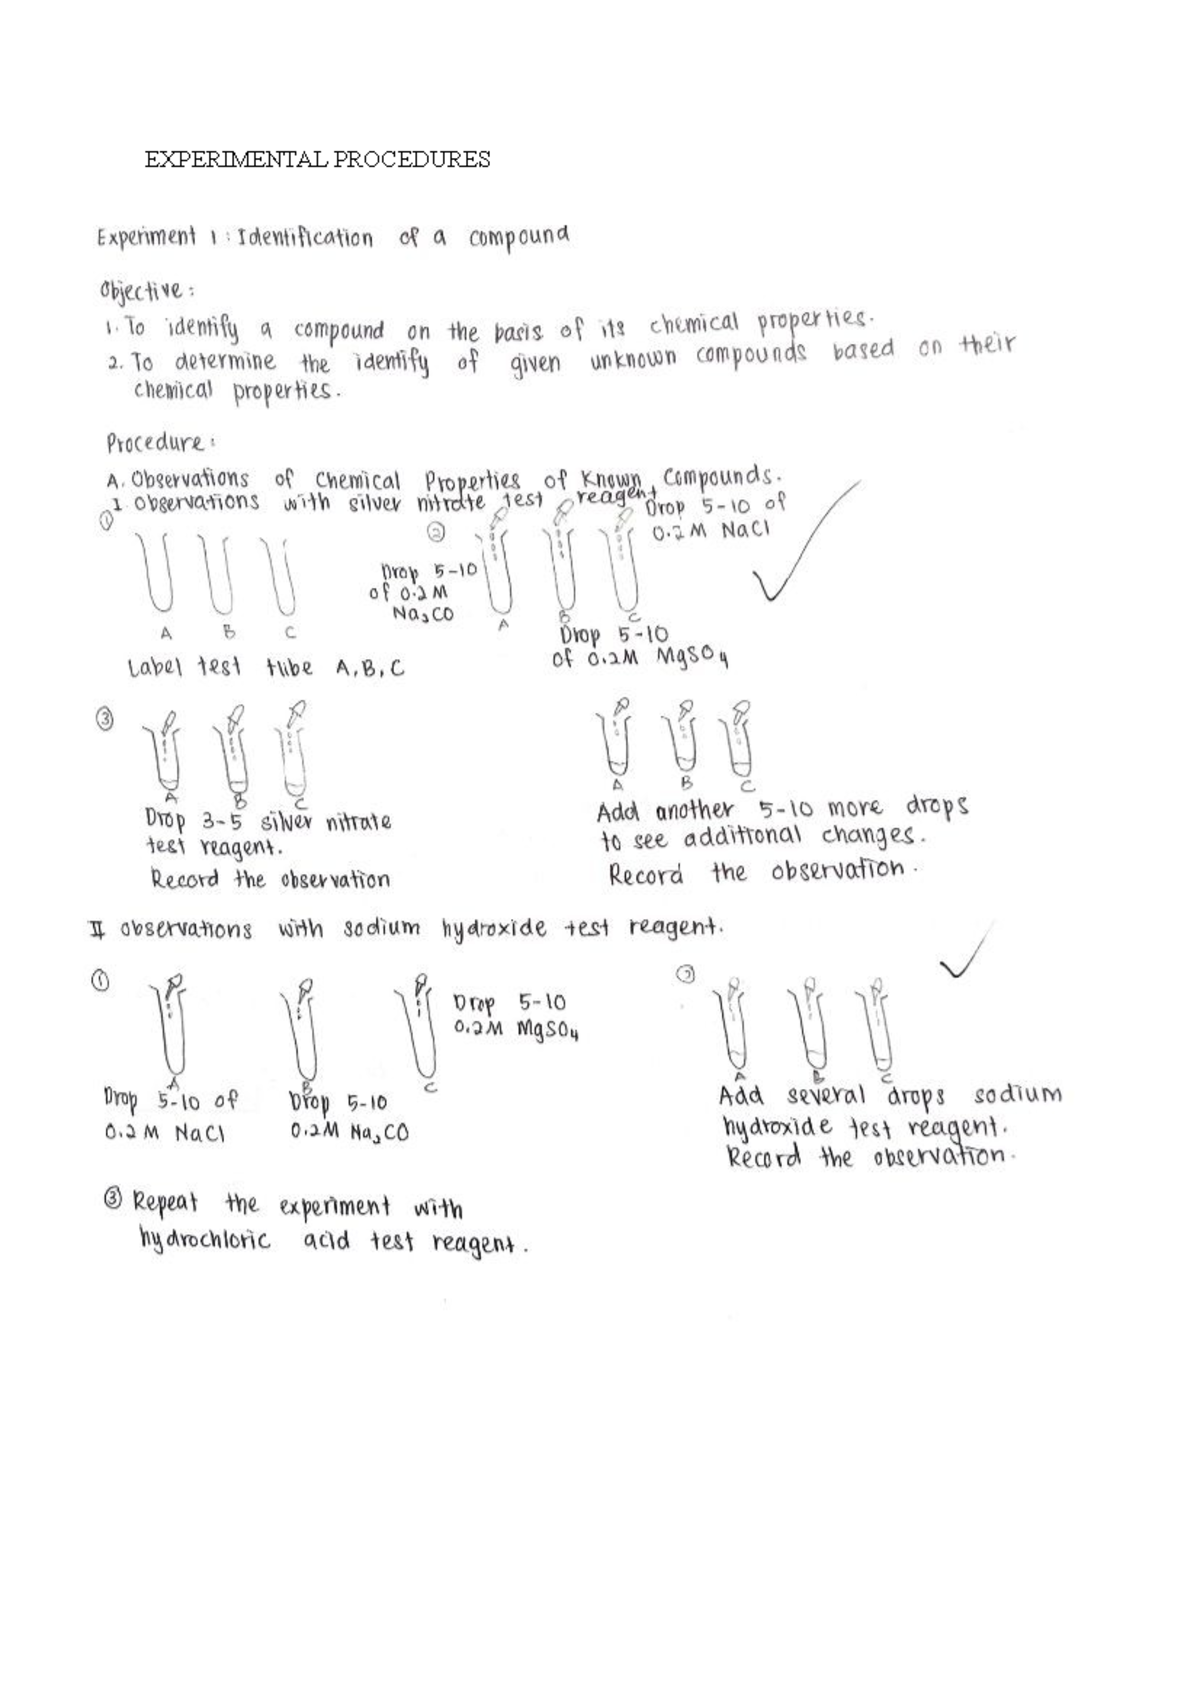 EXPERIMENTAL PROCEDURES
Experiment 1 : Identification of a compound
Objective :
1. To identify a compound on the basis of its chemical properties.
2. To determine the identify of given unknown compounds based on their
chemical properties.
Procedure :
A. Observations of Chemical Properties of Known Compounds.
I Observations with silver nitrate test reagent
①
A B C
Label test tube A, B, C
②
Drop 5-10
of 0.2 M
Na₂CO
A B C
Drop 5-10 of
0.2M NaCl
Drop 5-10
of 0.2M MgSO₄
③
A B C
Drop 3-5 silver nitrate
test reagent.
Record the observation
A B C
Add another 5-10 more drops
to see additional changes.
Record the observation.
II observations with sodium hydroxide test reagent.
①
A B C
Drop 5-10 of
0.2 M NaCl
Drop 5-10
0.2M Na₂CO
Drop 5-10
0.2M MgSO₄
②
A B C
Add several drops sodium
hydroxide test reagent.
Record the observation.
③ Repeat the experiment with
hydrochloric acid test reagent.